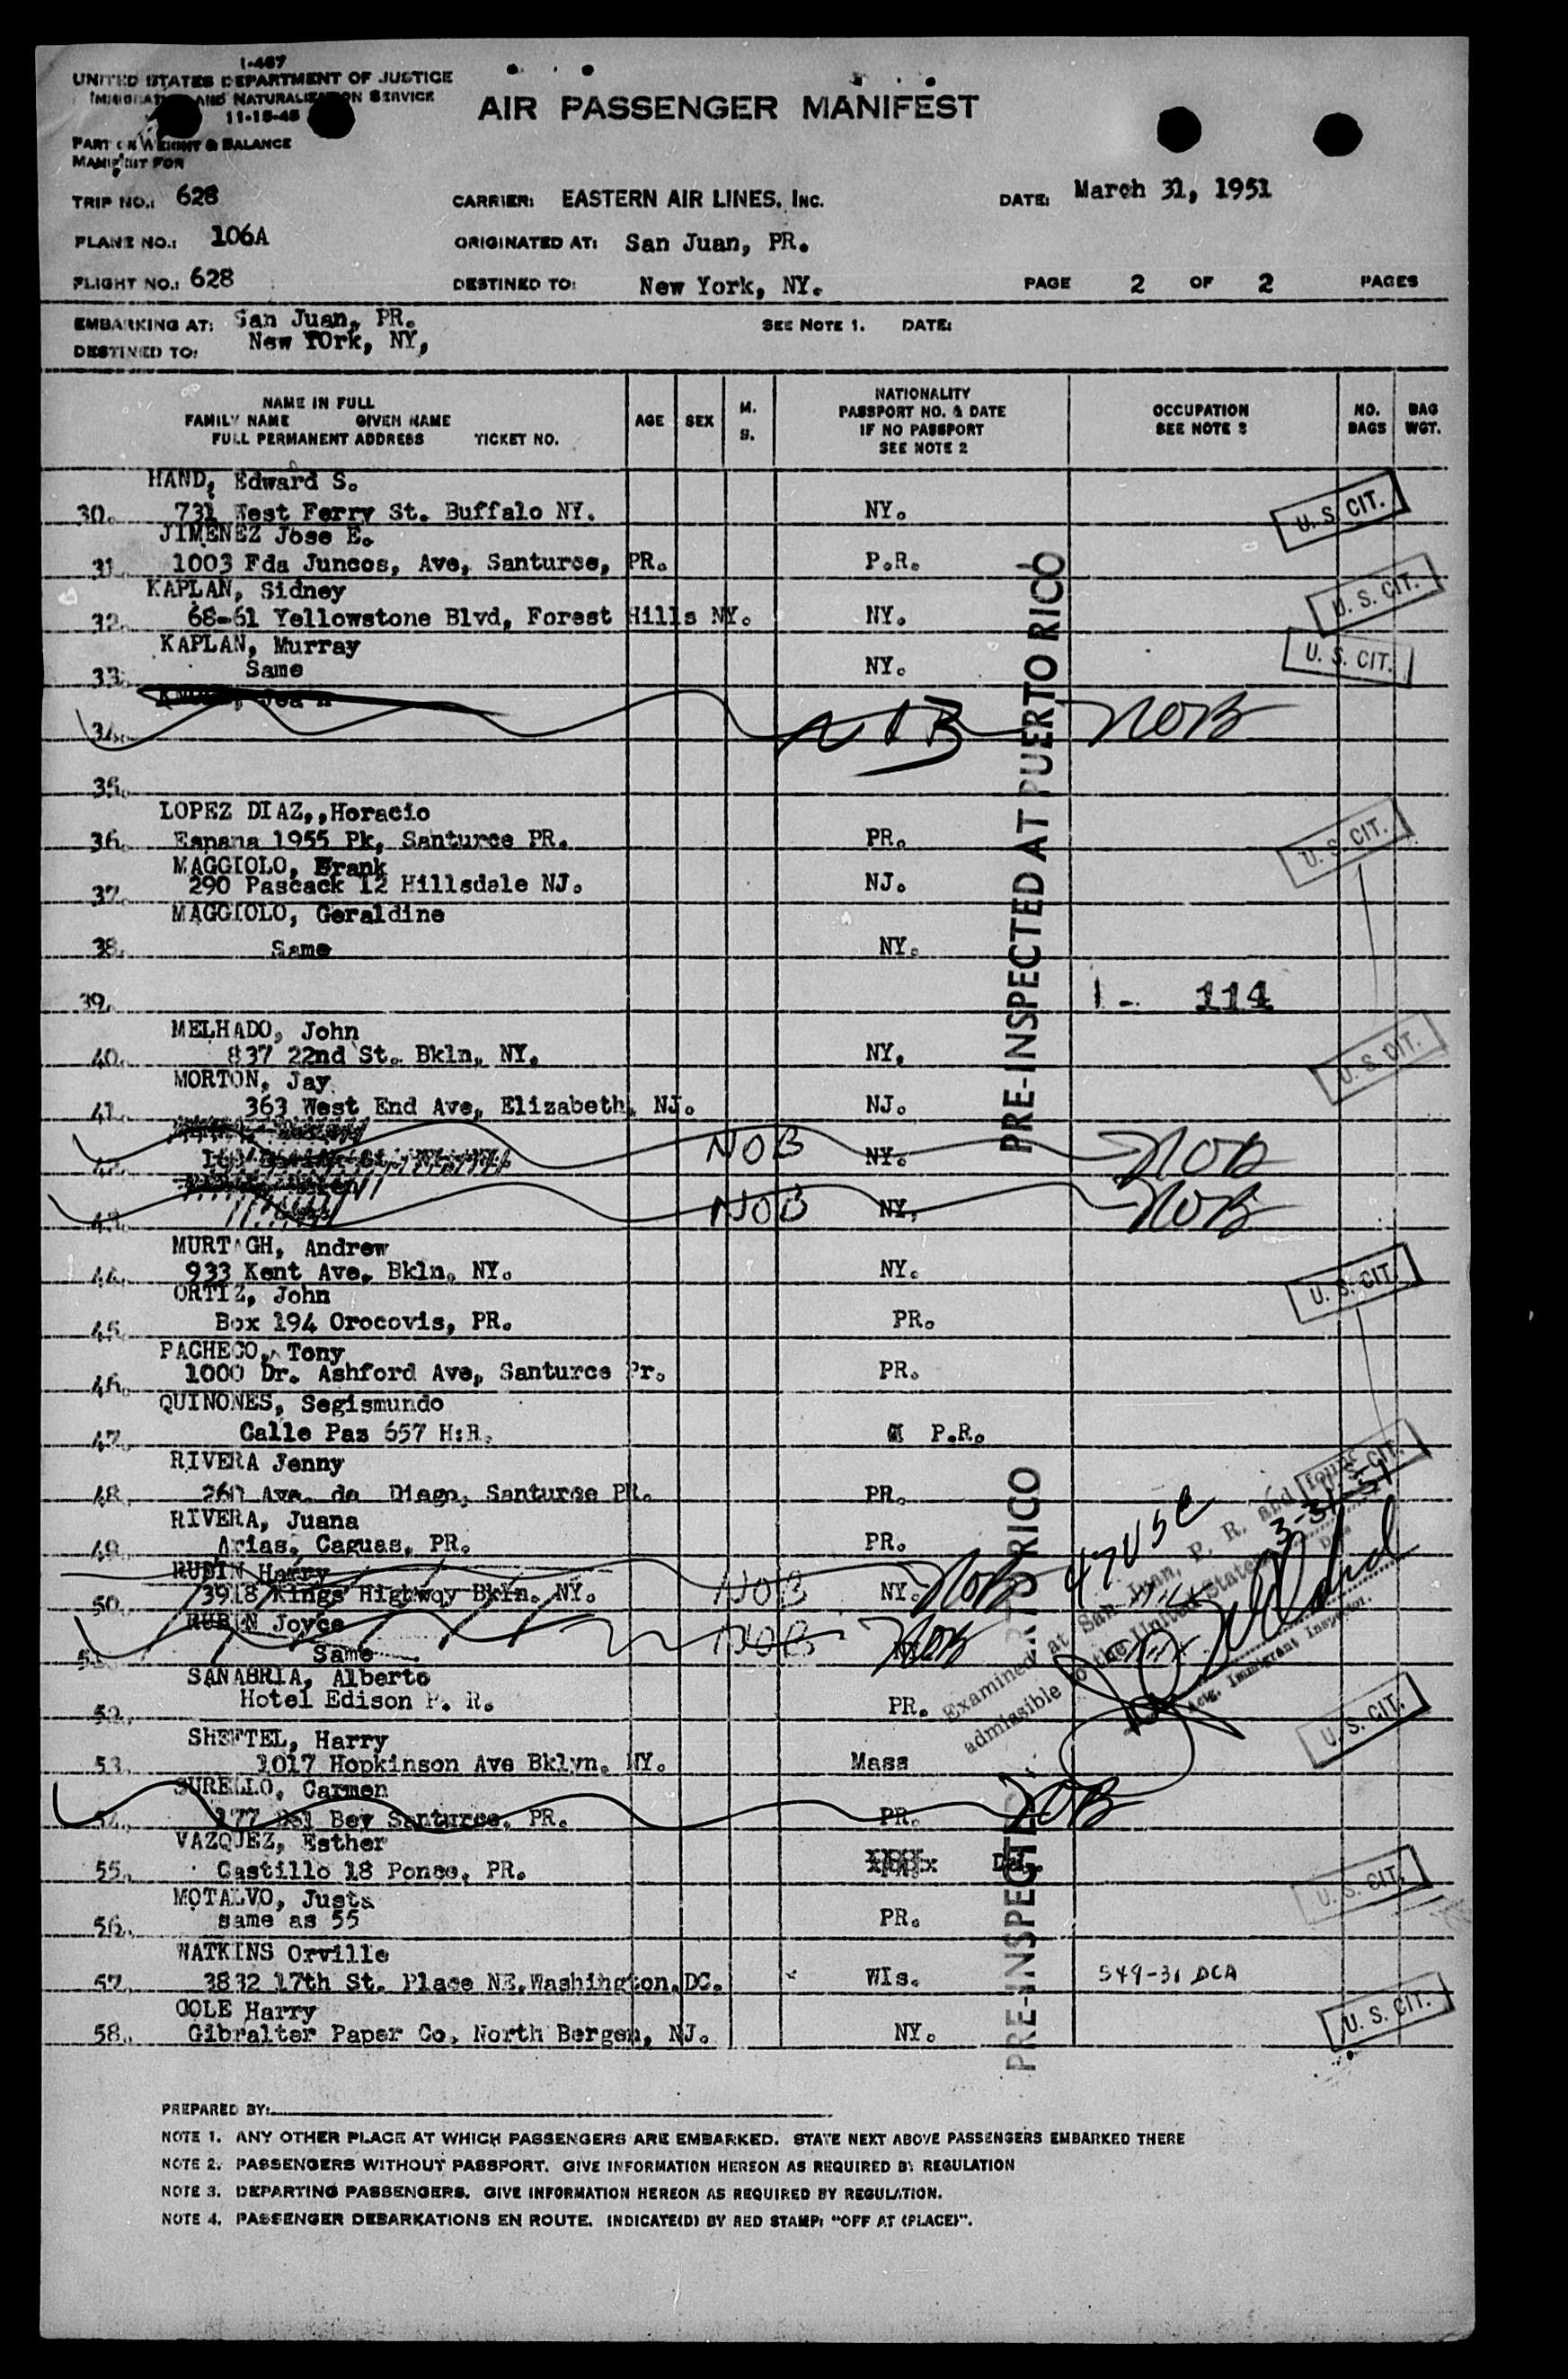 I-467
UNITED STATES DEPARTMENT OF JUSTICE
IMMIGRATION AND NATURALIZATION SERVICE
11-15-45
AIR PASSENGER MANIFEST
PART ON WEIGHT & BALANCE
MANIFEST FOR
TRIP NO.: 628 CARRIER: EASTERN AIR LINES, INC. DATE: March 31, 1951
PLANE NO.: 106A ORIGINATED AT: San Juan, PR.
FLIGHT NO.: 628 DESTINED TO: New York, NY. PAGE 2 OF 2 PAGES
EMBARKING AT: San Juan, PR. SEE NOTE 1. DATE:
DESTINED TO: New YOrk, NY,
NAME IN FULL
FAMILY NAME GIVEN NAME
FULL PERMANENT ADDRESS TICKET NO.
AGE
SEX
M.
S.
NATIONALITY
PASSPORT NO. & DATE
IF NO PASSPORT
SEE NOTE 2
OCCUPATION
SEE NOTE 3
NO.
BAGS
BAG
WGT.
HAND, Edward S.
30. 731 West Ferry St. Buffalo NY. NY. U. S. CIT.
JIMENEZ Jose E.
31. 1003 Fda Juncos, Ave, Santurce, PR. P.R.
KAPLAN, Sidney
32. 68-61 Yellowstone Blvd, Forest Hills NY. NY. U. S. CIT.
KAPLAN, Murray
33. Same NY. U. S. CIT.
34. NOB NOB
35.
LOPEZ DIAZ,,Horacio
36. Espana 1955 Pk, Santurce PR. PR. U. S. CIT.
MAGGIOLO, Frank
37. 290 Pascack 12 Hillsdale NJ. NJ.
MAGGIOLO, Geraldine
38. Same NY.
39. 1 - 114
MELHADO, John
40. 837 22nd St. Bkln, NY. NY. U. S. CIT.
MORTON, Jay
41. 363 West End Ave, Elizabeth, NJ. NJ.
42. NOB NY. NOB
43. NOB NY. NOB
MURTAGH, Andrew
44. 933 Kent Ave, Bkln, NY. NY. U. S. CIT.
ORTIZ, John
45. Box 194 Orocovis, PR. PR.
PACHECO, Tony
46. 1000 Dr. Ashford Ave, Santurce Pr. PR.
QUINONES, Segismundo
47. Calle Paz 657 H:R. P.R.
RIVERA Jenny
48. 260 Ave. de Diego, Santurce PR. PR. U. S. CIT.
RIVERA, Juana
49. Arias, Caguas, PR. PR. 47 USC 3-31-51
RUBIN Harry
50. 3918 Kings Highway Bkln. NY. NOB NY. NOB
RUBIN Joyce
51. Same NOB NOB
SANABRIA, Alberto
52. Hotel Edison P. R. PR. U. S. CIT.
Examined at San Juan, P. R. and found
admissible to the United States
Date
Actg. Immigrant Inspector.
SHEFTEL, Harry
53. 1017 Hopkinson Ave Bklyn. NY. Mass
SURELLO, Carmen
54. 177 Del Bey Santurce, PR. PR. NOB
VAZQUEZ, Esther
55. Castillo 18 Ponce, PR. U. S. CIT.
MOTALVO, Justa
56. same as 55 PR.
WATKINS Orville
57. 3832 17th St. Place NE.Washington,DC. WIs. 549-31 DCA
COLE Harry
58. Gibralter Paper Co, North Bergen, NJ. NY. U. S. CIT.
PRE-INSPECTED AT PUERTO RICO
PRE-INSPECTED RTO RICO
PREPARED BY:
NOTE 1. ANY OTHER PLACE AT WHICH PASSENGERS ARE EMBARKED. STATE NEXT ABOVE PASSENGERS EMBARKED THERE
NOTE 2. PASSENGERS WITHOUT PASSPORT. GIVE INFORMATION HEREON AS REQUIRED BY REGULATION
NOTE 3. DEPARTING PASSENGERS. GIVE INFORMATION HEREON AS REQUIRED BY REGULATION.
NOTE 4. PASSENGER DEBARKATIONS EN ROUTE. INDICATE(D) BY RED STAMP: "OFF AT (PLACE)".